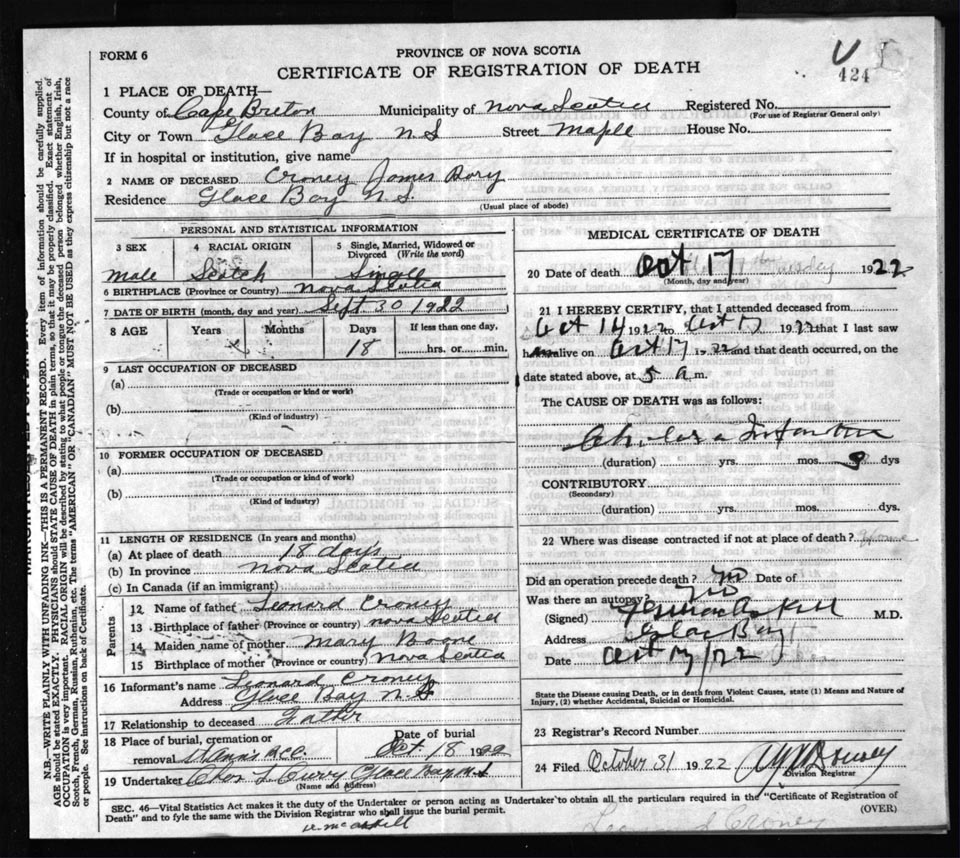 FORM 6
PROVINCE OF NOVA SCOTIA
CERTIFICATE OF REGISTRATION OF DEATH
424
1 PLACE OF DEATH—
County of Cape Breton Municipality of Nova Scotia Registered No.
(For use of Registrar General only)
City or Town Glace Bay N.S Street Maple House No.
If in hospital or institution, give name
2 NAME OF DECEASED Croney James Rory
Residence Glace Bay N.S.
(Usual place of abode)
PERSONAL AND STATISTICAL INFORMATION
3 SEX 4 RACIAL ORIGIN 5 Single, Married, Widowed or Divorced (Write the word)
Male Scotch Single
6 BIRTHPLACE (Province or Country) Nova Scotia
7 DATE OF BIRTH (month, day and year) Sept 30 1922
8 AGE Years Months Days If less than one day,
18 hrs. or min.
9 LAST OCCUPATION OF DECEASED
(a)
(Trade or occupation or kind or work)
(b)
(Kind of industry)
10 FORMER OCCUPATION OF DECEASED
(a)
(Trade or occupation or kind of work)
(b)
(Kind of industry)
11 LENGTH OF RESIDENCE (In years and months)
(a) At place of death 18 days
(b) In province Nova Scotia
(c) In Canada (if an immigrant)
Parents
12 Name of father Leonard Croney
13 Birthplace of father (Province or country) Nova Scotia
14 Maiden name of mother Mary Boone
15 Birthplace of mother (Province or country) Nova Scotia
16 Informant's name Leonard Croney
Address Glace Bay N.S
17 Relationship to deceased Father
18 Place of burial, cremation or removal Date of burial
Oct. 18 1922
19 Undertaker Chas L Curry Glace Bay N.S
(Name and Address)
MEDICAL CERTIFICATE OF DEATH
20 Date of death Oct 17 1922
(Month, day and year)
21 I HEREBY CERTIFY, that I attended deceased from
Oct 14 1922 to Oct 17 1922 that I last saw
h alive on Oct 17 1922 and that death occurred, on the
date stated above, at 5 a m.
The CAUSE OF DEATH was as follows:
Cholera Infantum
(duration) yrs. mos. dys
CONTRIBUTORY
(Secondary)
(duration) yrs. mos. dys.
22 Where was disease contracted if not at place of death? Home
Did an operation precede death? no Date of
Was there an autopsy? no
(Signed) M.D.
Address Glace Bay
Date Oct 17/22
State the Disease causing Death, or in death from Violent Causes, state (1) Means and Nature of
Injury, (2) whether Accidental, Suicidal or Homicidal.
23 Registrar's Record Number
24 Filed October 31 1922
Division Registrar
SEC. 46—Vital Statistics Act makes it the duty of the Undertaker or person acting as Undertaker to obtain all the particulars required in the "Certificate of Registration of
Death" and to fyle the same with the Division Registrar who shall issue the burial permit. (OVER)
Leonard Croney
N.B.—WRITE PLAINLY WITH UNFADING INK—THIS IS A PERMANENT RECORD. Every item of information should be carefully supplied.
AGE should be stated EXACTLY. PHYSICIANS should STATE CAUSE OF DEATH in plain terms, so that it may be properly classified. Exact statement of
OCCUPATION is very important. RACIAL ORIGIN will be described by stating to what people or tongue the deceased person belonged whether English, Irish,
Scotch, French, German, Russian, Ruthenian, etc. The terms "AMERICAN" OR "CANADIAN" MUST NOT BE USED as they express citizenship but not a race
or people. See instructions on back of Certificate.